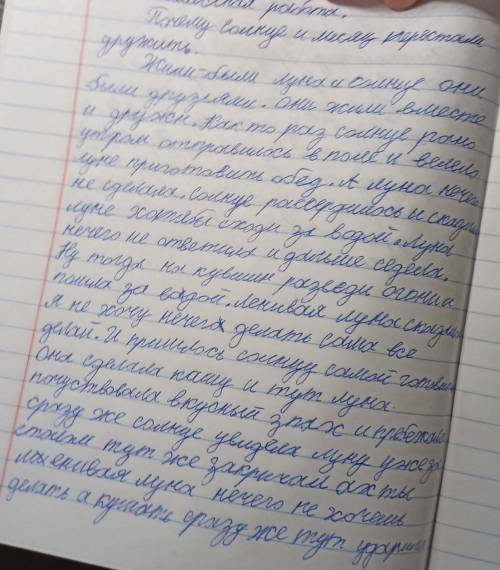 работа.
Почему солнце и месяц перестали
дружить.
Жили-были луна и солнце они
были друзьями. Они жили вместе
и дружн. Как то раз солнце рано
утром отправилось в поле и велело
луне приготовить обед. А луна нечего
не сделала. Солнце рассердилось и сказало
луне хотябы сходи за водой. Луна
нечего не ответила и дальше седела.
Ну тогда на кувшин разведи огонь и
пошла за водой. Ленивая луна сказала
Я не хочу нечего делать сама все
делай. И пришлось солнцу самой готовить
Она сделала кашу и тут луна
почуствовала вкусный запах и прибежала
сразу же солнце увидела луну уже за
столом тут же закричал ах ты
ленивая луна нечего не хочешь
делать а кушать сразу же тут ударила